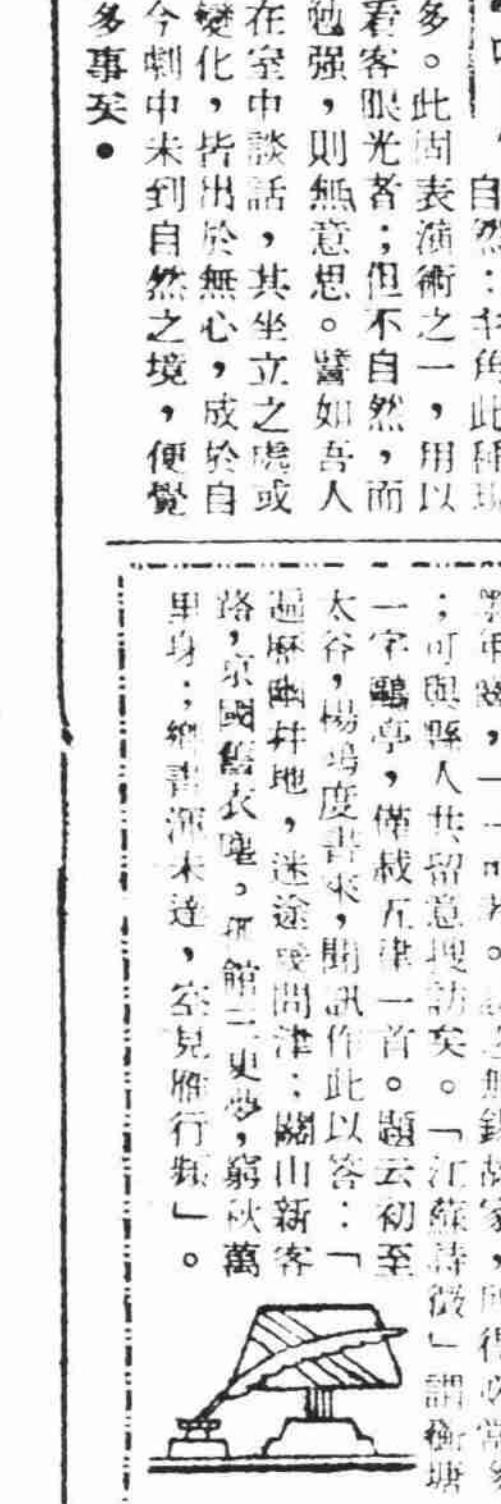 自然：
多。此固表演術之一，用以
看客眼光者；但不自然，而
勉强，則無意思。譬如吾人
在室中談話，其坐立之處或
變化，皆出於無心，成於自
今劇中未到自然之境，便覺
多事矣●
；可與縣人共留意搜訪矣。「江蘇詩徵」謂衡塘
一字鷗亭，僅載五律一首。題云初至
太谷，楊塢度書來，聞訊作此以答：「
遍歷幽并地，迷途憂問津：關山新客
路，京國舊衣塵。孤館二更夢，窮秋萬
里身；鄉書渾未達，空見雁行頻」。